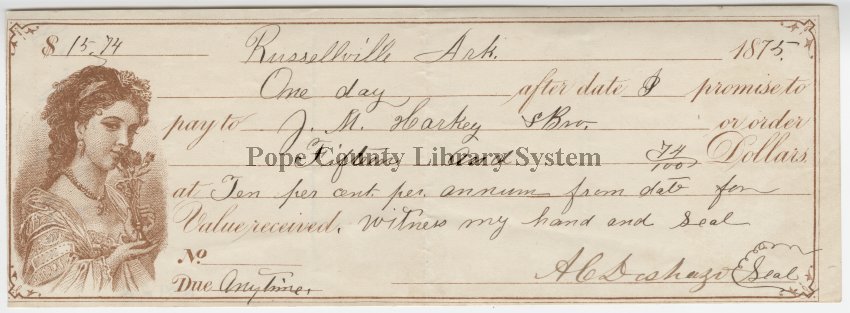 $ 15.74 Russellville Ark. 1875.
One day after date I promise to
pay to J. M. Harkey & Bro. or order
Fifteen and 74/100 Dollars
Pope County Library System
at Ten per cent. per. annum from date for
Value received. Witness my hand and seal
No
Due Anytime. A C Deshazo Seal